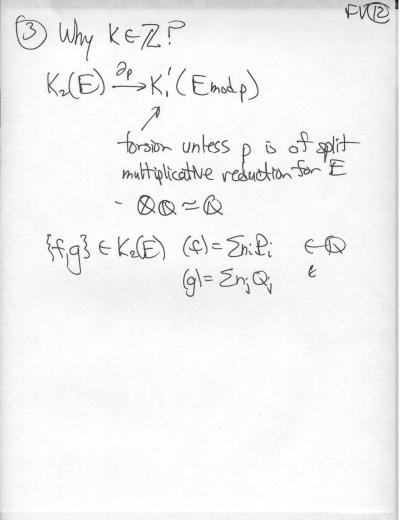 FV(12)
③ Why K∈ℤ?
K₂(E) →^∂p K₁'(E mod p)
↗
torsion unless p is of split
multiplicative reduction for E
- ⊗ℚ ≃ ℚ
{f,g} ∈ K₂(E) (f) = ΣnᵢPᵢ ∈ ℚ
(g) = ΣnⱼQⱼ